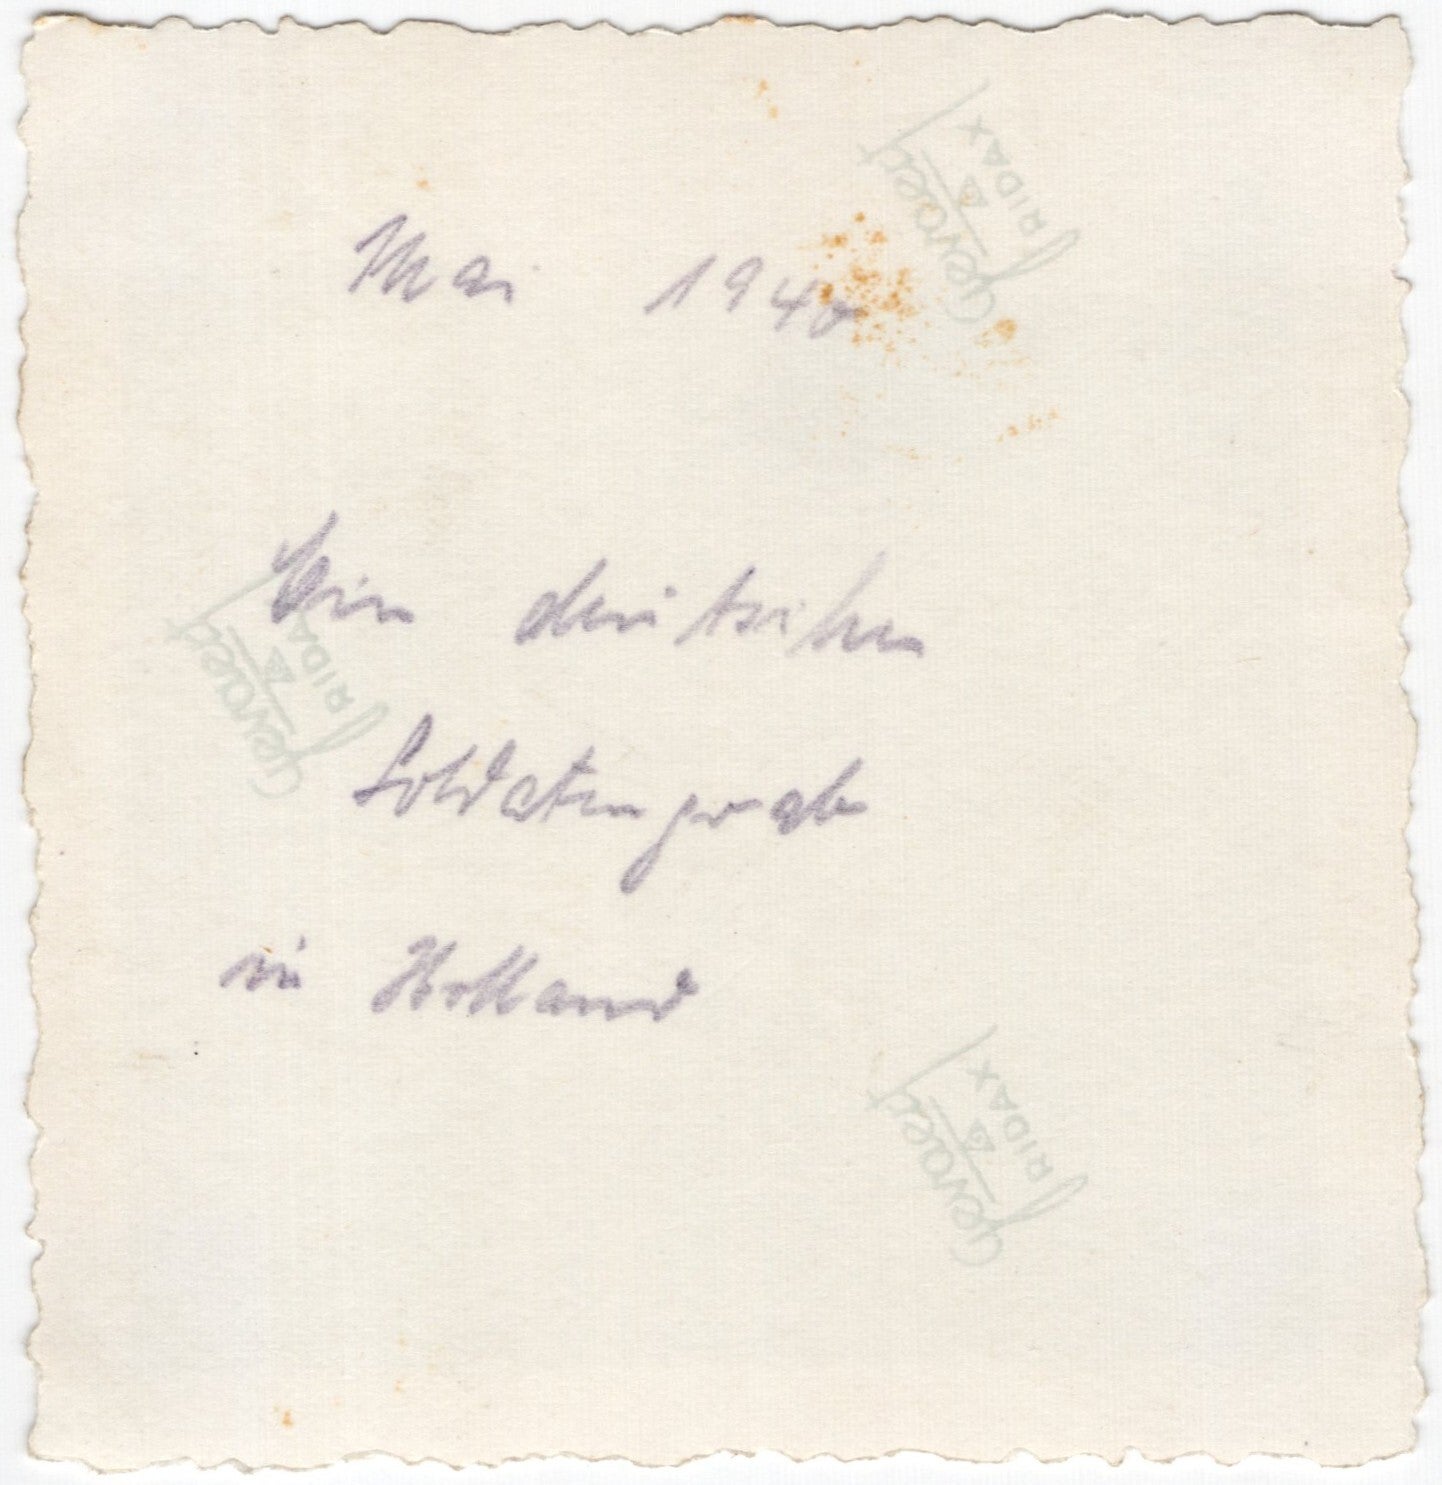 Mai 1940
Ein deutschen
Soldatengrab
in Holland
Gevaert
RIDAX
Gevaert
RIDAX
Gevaert
RIDAX